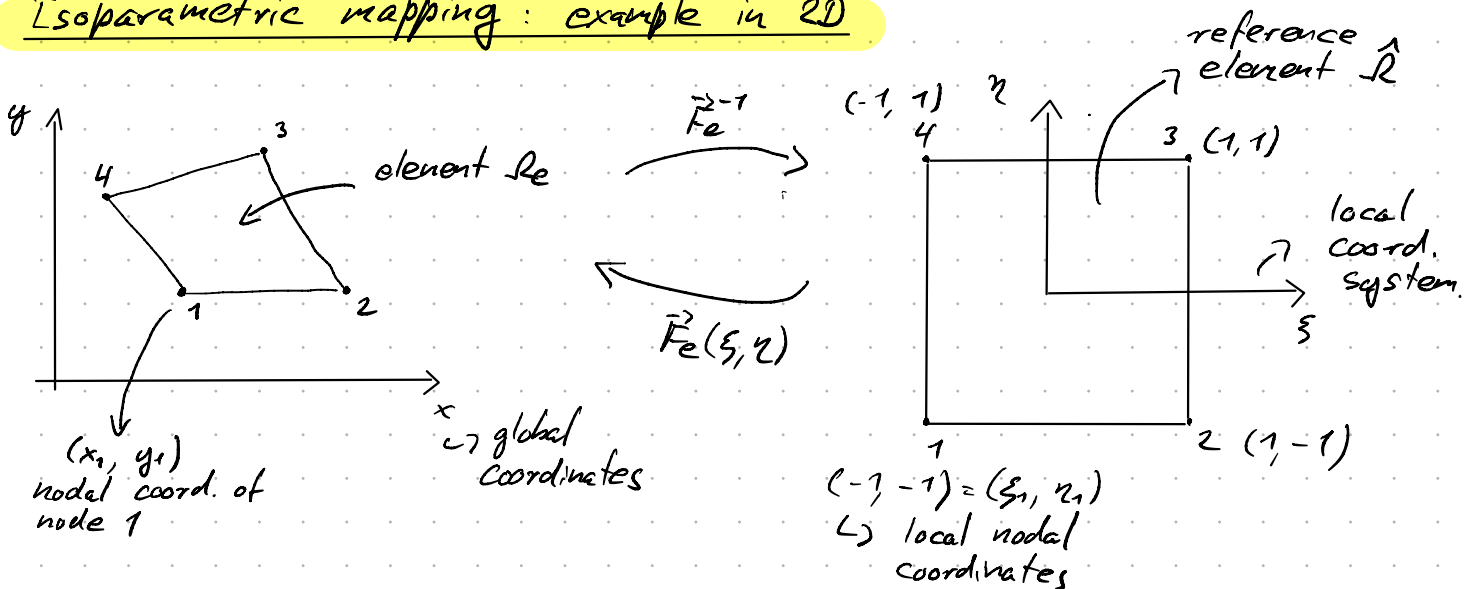 Isoparametric mapping : example in 2D
y
3
4
element Ωe
1
2
x
↳ global
coordinates
(x₁, y₁)
nodal coord. of
node 1
F⃗e⁻¹
F⃗e(ξ, η)
reference
element Ω̂
(-1, 1)
η
4
3 (1, 1)
local
coord.
system.
ξ
1
2 (1, -1)
(-1, -1) = (ξ₁, η₁)
↳ local nodal
coordinates